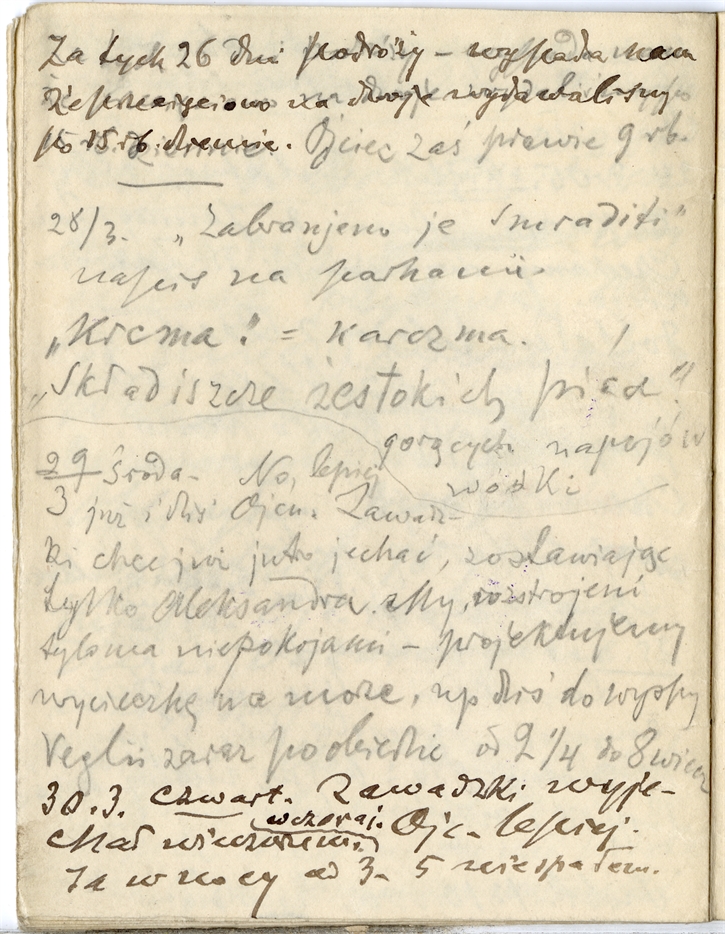 Za tych 26 dni podróży – wypada nam
że przecięciowo na dwoje wydawaliśmy
po 15 rb. dziennie. Ojciec zaś prawie 9 rb.
28/3. „Zabranjeno je smraditi”
napis na parkanie.
„Krcma”! = karczma.
„Składiszcze żestokich pica”!
gorących napojów
wódki
29/3 Środa – No, lepiej
już i dziś Ojcu. Zawadz-
ki chce już jutro jechać, zostawiając
tylko Aleksandra. My, rozstrojeni
tyloma niepokojami – projektujemy
wycieczkę na morze, np dziś do wyspy
Veglii zaraz po obiedzie od 2 1/4 do 8 wiecz
30.3. czwart. Zawadzki wyje-
chał wieczorem. wczoraj. Ojc. lepiej.
Ja w nocy od 3 – 5 nie spałem.